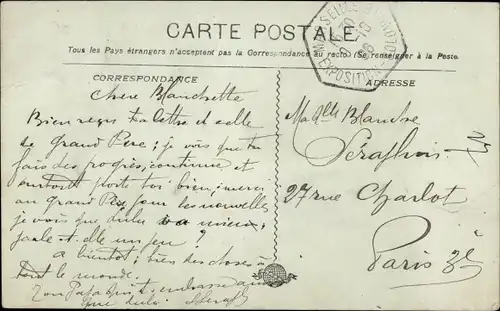 CARTE POSTALE
Tous les Pays étrangers n'acceptent pas la Correspondance au recto (Se renseigner à la Poste
CORRESPONDANCE
ADRESSE
MARSEILLE COLO
EXPOSITION
Chère Blanchette
Bien reçu ta lettre et celle
de grand Père; je vois que tu
fais des progrès, continue et
surtout porte toi bien; merci
au grand Père pour les nouvelles
je vois que Lulu va mieux;
parle-t-elle un peu ?
a bientôt; bien des choses à
tout le monde.
Ton Papa qui t'embrasse ainsi
que Lulu
Madlle Blanche
Séraphin
27 rue Charlot
Paris 3e